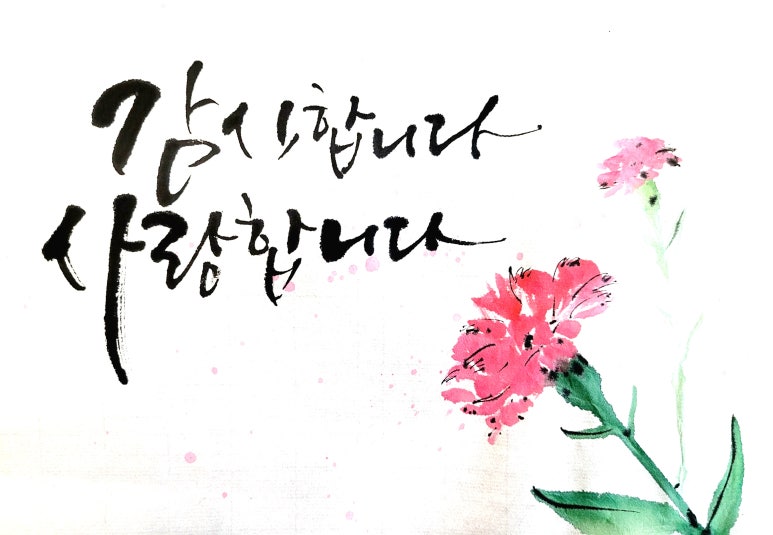 감사합니다
사랑합니다